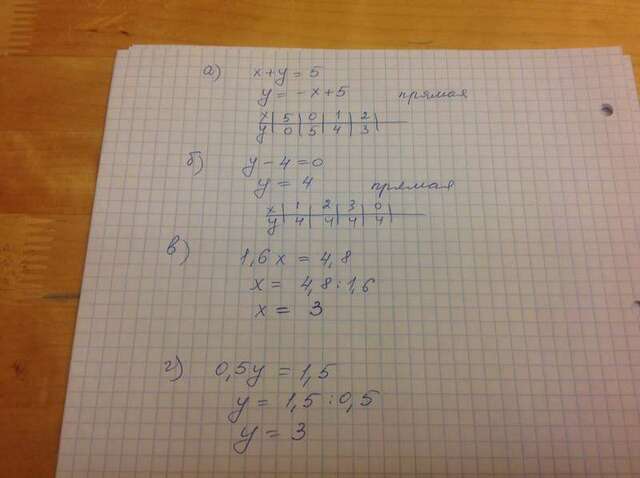 а) x+y=5
y = -x+5 прямая
x | 5 | 0 | 1 | 2 |
y | 0 | 5 | 4 | 3 |
б) y-4=0
y = 4 прямая
x | 1 | 2 | 3 | 0 |
y | 4 | 4 | 4 | 4 |
в) 1,6x = 4,8
x = 4,8:1,6
x = 3
г) 0,5y = 1,5
y = 1,5:0,5
y = 3